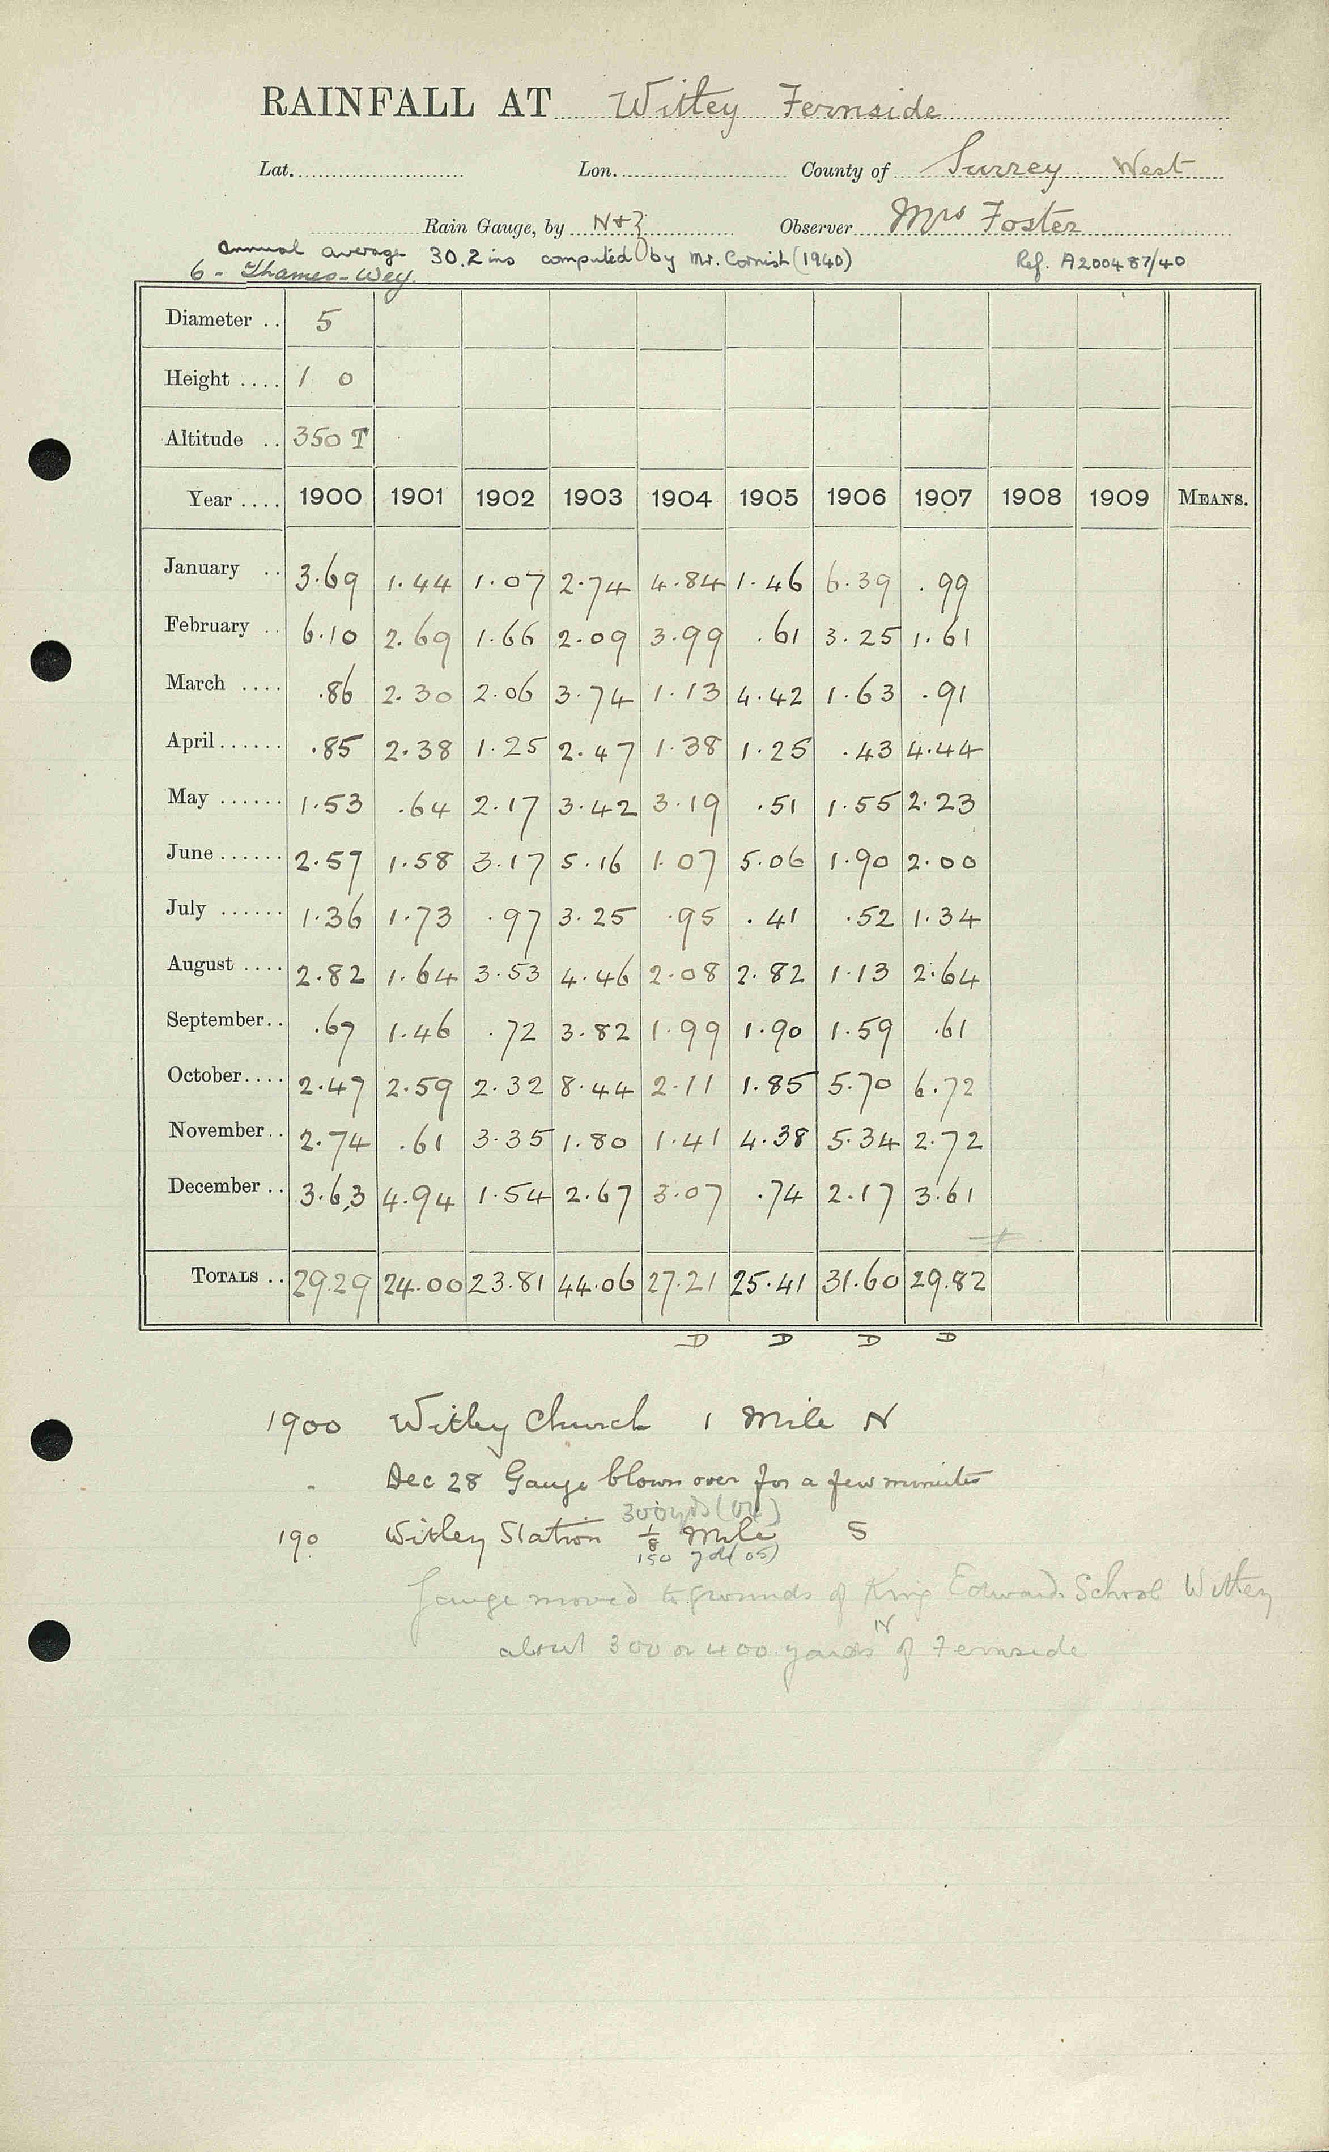 RAINFALL AT Witley Fernside
Lat. Lon. County of Surrey West
Rain Gauge, by N+Z Observer Mrs Foster
Annual average 30.2 ins computed by Mr. Cornish (1940) Ref. A200487/40
6 - Thames-Wey.
Diameter .. 5
Height .... 1 0
Altitude .. 350 T
Year .... 1900 1901 1902 1903 1904 1905 1906 1907 1908 1909 MEANS.
January .. 3.69 1.44 1.07 2.74 4.84 1.46 6.39 .99
February .. 6.10 2.69 1.66 2.09 3.99 .61 3.25 1.61
March .... .86 2.30 2.06 3.74 1.13 4.42 1.63 .91
April...... .85 2.38 1.25 2.47 1.38 1.25 .43 4.44
May ...... 1.53 .64 2.17 3.42 3.19 .51 1.55 2.23
June ...... 2.57 1.58 3.17 5.16 1.07 5.06 1.90 2.00
July ...... 1.36 1.73 .97 3.25 .95 .41 .52 1.34
August .... 2.82 1.64 3.53 4.46 2.08 2.82 1.13 2.64
September.. .67 1.46 .72 3.82 1.99 1.90 1.59 .61
October.... 2.47 2.59 2.32 8.44 2.11 1.85 5.70 6.72
November.. 2.74 .61 3.35 1.80 1.41 4.38 5.34 2.72
December .. 3.63 4.94 1.54 2.67 3.07 .74 2.17 3.61
TOTALS .. 29.29 24.00 23.81 44.06 27.21 25.41 31.60 29.82
D D D D
1900 Witley Church 1 Mile N
Dec 28 Gauge blown over for a few minutes
300 yds (04)
190 Witley Station 1/8 Mile S
150 yds (05)
Gauge moved to grounds of King Edwards School Witley
about 300 or 400 yards N of Fernside